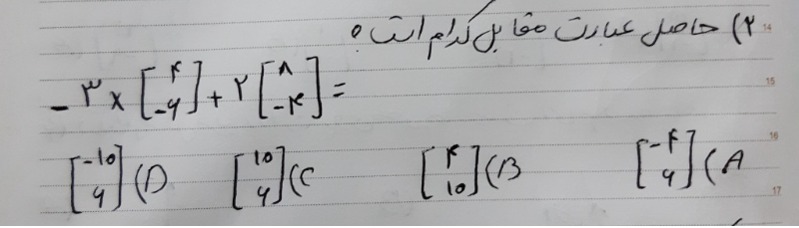 ۲) حاصل عبارت مقابل کدام است؟
-۳ × [۴ -۶] + ۲ [۸ -۴] =
A) [-۴ ۶] B) [۴ ۱۰] C) [۱۰ ۶] D) [-۱۰ ۶]
14
15
16
17